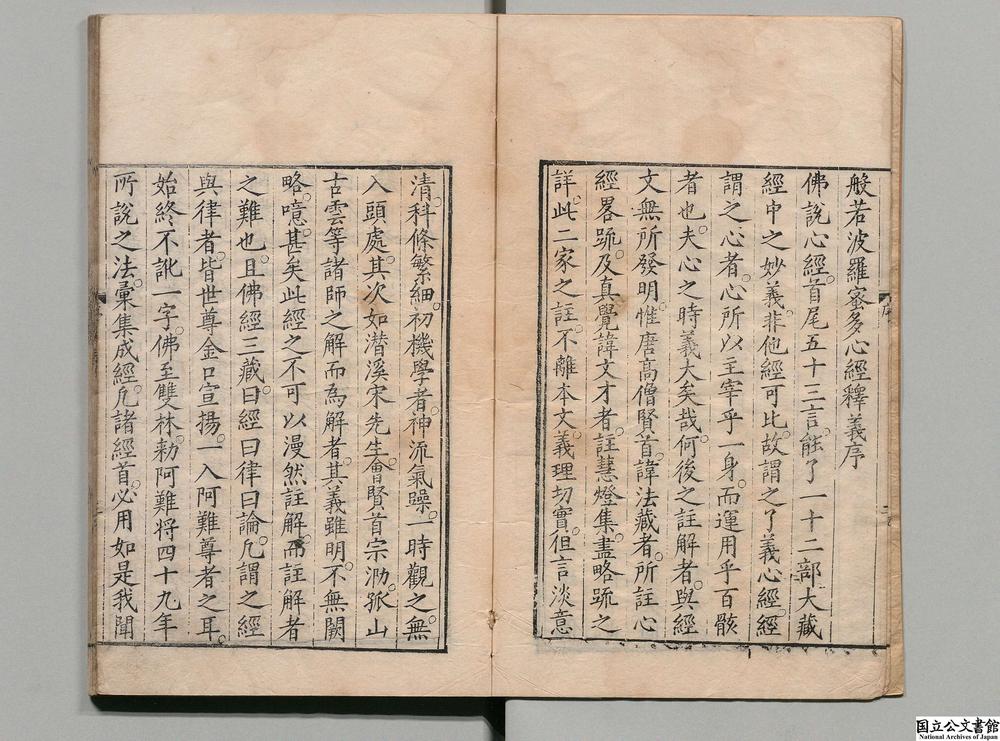 般若波羅蜜多心經釋義序
佛說心經首尾五十三言能了一十二部大藏
經中之妙義非他經可比故謂之了義心經經
謂之心者心所以主宰乎一身而運用乎百骸
者也夫心之時義大矣哉何後之註解者與經
文無所發明惟唐高僧賢首諱法藏者所註心
經畧疏及真覺諱文才者註慧燈集盡略疏之
詳此二家之註不離本文義理切實但言淡意
清科條繁細初機學者神流氣躁一時觀之無
入頭處其次如潜溪宋先生會賢首宗泐孤山
古雲等諸師之解而為解者其義雖明不無闕
略噫甚矣此經之不可以漫然註解而註解者
之難也且佛經三藏曰經曰律曰論凢謂之經
與律者皆世尊金口宣揚一入阿難尊者之耳
始終不訛一字佛至雙林勑阿難将四十九年
所說之法彙集成經凢諸經首必用如是我聞
国立公文書館
National Archives of Japan